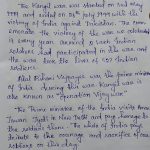 The Kargil war was started on 3rd may
1999 and ended on 26th July 1999 with the
victory of India against Pakistan. The
the victory of the war we celebrate
every year
soldiers who had participated in the war and
the war took the lives of 527 Indian
soldiers.
Atal Bihari Vajpayee was the prime minister
of India during this war. Kargil war is
also known as "operation Vijay".
The Prime minister of the India visits
Jawan Jyoti in New Delhi and pay homage to
the soldiers there. The whole of India pay
tribute to the courage and sacrifice of our
soldiers on this day.